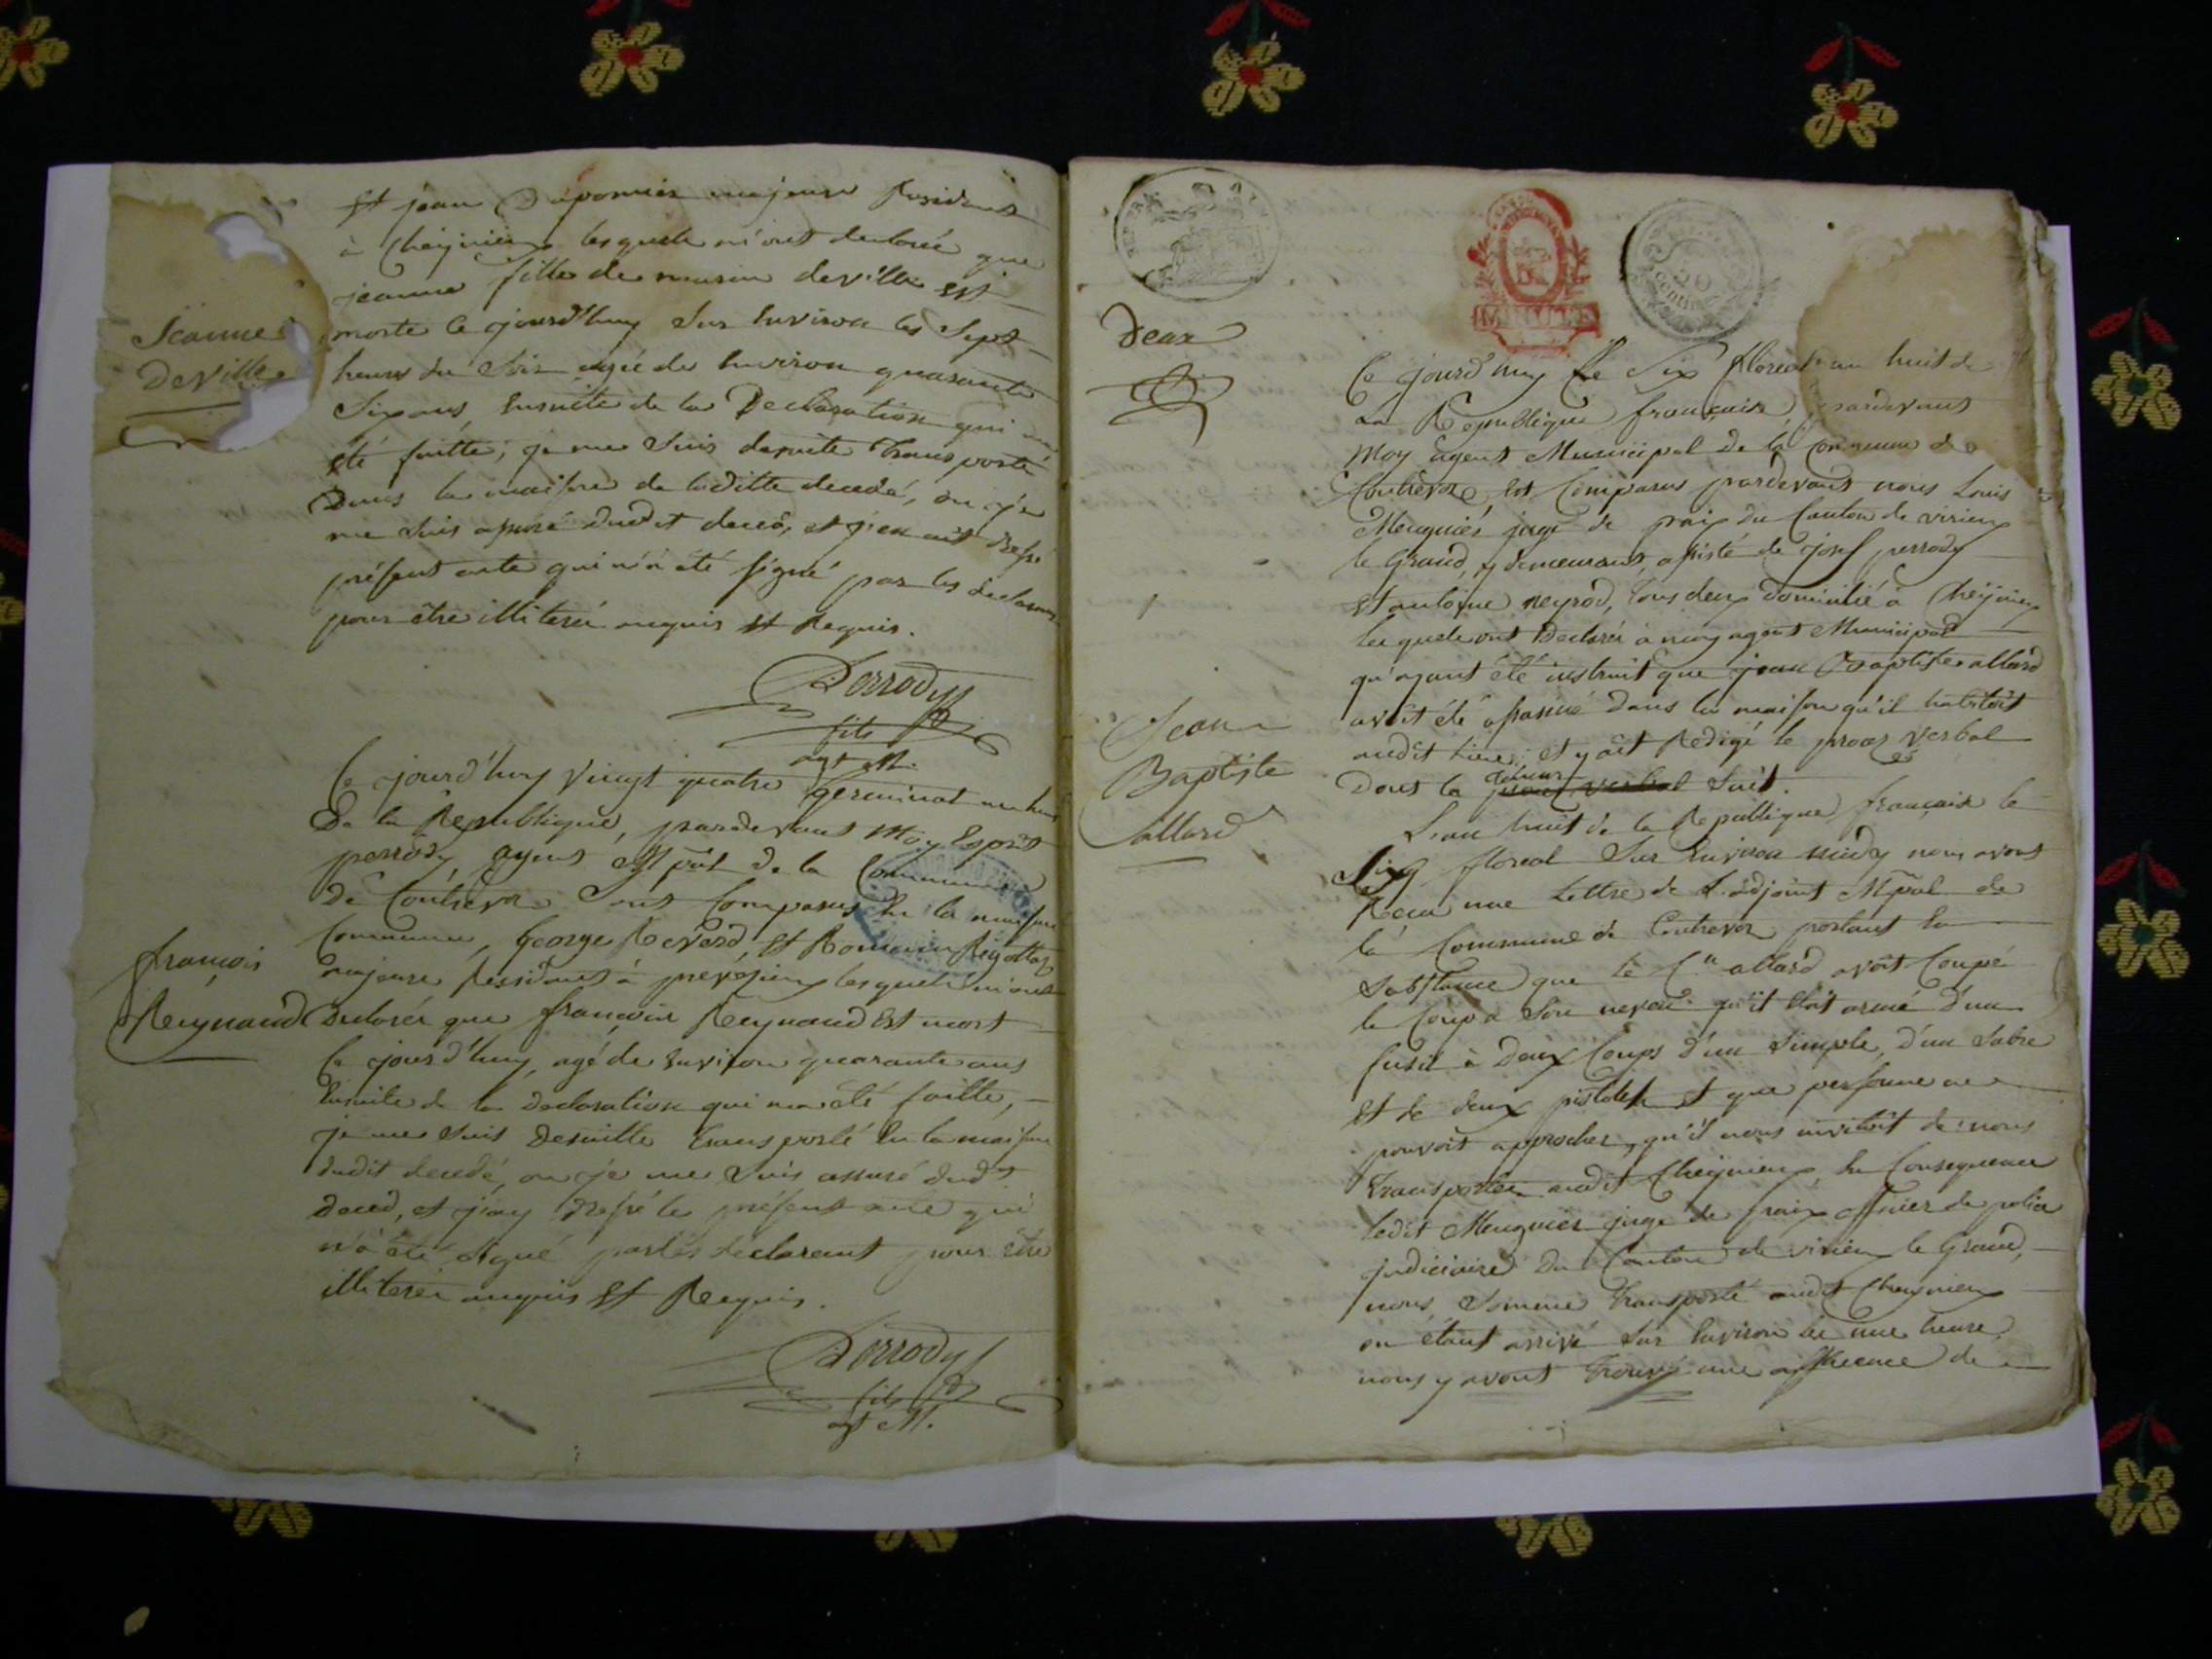 Jeanne
Deville
Et jean Déponnier majeurs Residents
à Cheignieux lesquels m'ont declarée que
jeanne fille de deville est
morte ce jourd'huy sur Environ les sept
heures du soir agée de Environ quarante
six ans, Ensuite de la Declaration qui
été faitte, je me suis desuite Transporté
Dans la maison de laditte decedé, ou je
me suis assuré dudit deces, et j'en ait dressé
présent acte qui n'a été signé par les declarans
pour être illiteré enquis Et Requis.
Perrody
fils
agt M.
françois
Reynaud
Ce jourd'huy vingt quatre germinal an huit
De la Republique, pardevant Moy Esprit
perrody agent Mpal de la Commune
De Contrevoz sont Comparus En la maison
Commune, George Reverd, Et Romain Rigollaz
majeurs Residants à preveyzieux lesquels m'ont
Declarée que francois Reynaud Est mort
Ce jourd'huy, agé de Environ quarante ans
Ensuite de la declaration qui ma été faitte,
je me suis Desuitte transporté En la maison
dudit decedé, ou je me suis assuré dudt
deced, et j'ay dressé le présent acte qui
n'a été signé par les declarant pour être
illiteré enquis Et Requis.
Perrody
fils
agt M.
MINUTE
20
centimes
Deux
Jean
Baptiste
allard
Ce jourd'huy le Six floreal an huit de
La Republique francaise, pardevant
Moy agent Municipal de la Commune de
Contrevoz, est Comparus pardevant nous Louis
Meugnier juge de paix du Canton de virieux
le Grand, y demeurant, assisté de josf perrody
Et antoine neyrod, Tous deux domicilié à Cheignieux
lesquels ont Declaré à moy agent Municipal
qu'ayant été instruit que jean Baptiste allard
avoit été assasiné Dans la maison qu'il habitoit
audit lieu, et y ait Redigé le procez verbal
Dont la teneur suit.
L'an huit de la Republique francaise le
Six floreal sur Environ midy nous avons
Reçu une Lettre de L'adjoint Mpal de
la Commune de Contrevoz portant En
substance que le Cn allard avoit Coupé
le Coup à son neveu qu'il etoit armé d'un
fusil à Deux Coups d'un simple, d'un sabre
Et de deux pistolets Et que personne ne
pouvoit approcher, qu'il nous invitoit de nous
transporter audit Cheignieux, En Consequence
ledit Meugnier juge de paix officier de police
judiciaire du Canton de virieux le Grand,
nous sommes transporté audit Cheignieux
en étant arrivé sur Environ une heure,
nous y avont trouvé une affluence de